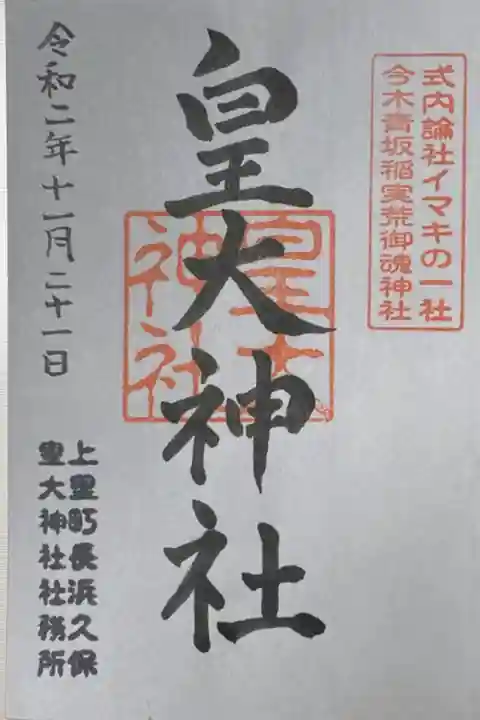 式内論社イマキの一社
今木青坂稲実荒御魂神社
皇大神社
皇大神社
令和二年十一月二十一日
上里町長浜久保
皇大神社社務所